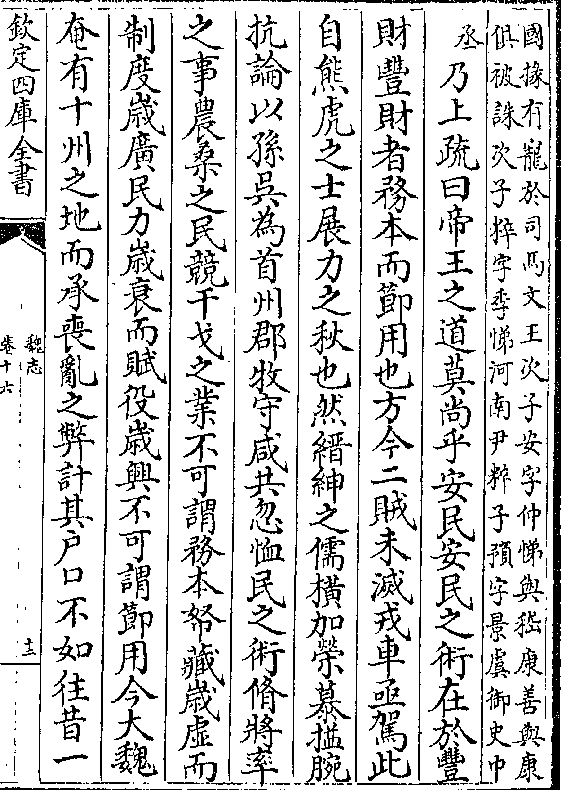 國掾有寵於司馬文王次子安字仲悌與嵇康善與康
俱被誅次子粹字季悌河南尹粹子預字景虞御史中
丞
乃上疏曰帝王之道莫尚乎安民安民之術在於豐
財豐財者務本而節用也方今二賊未滅戎車亟駕此
自熊虎之士展力之秋也然縉紳之儒橫加榮慕搤腕
抗論以孫吳為首州郡牧守咸共忽恤民之術脩將率
之事農桑之民競干戈之業不可謂務本帑藏歳虛而
制度歳廣民力歳衰而賦役歳興不可謂節用今大魏
奄有十州之地而承喪亂之弊計其戶口不如往昔一
欽定四庫全書
魏志
卷十六
十三